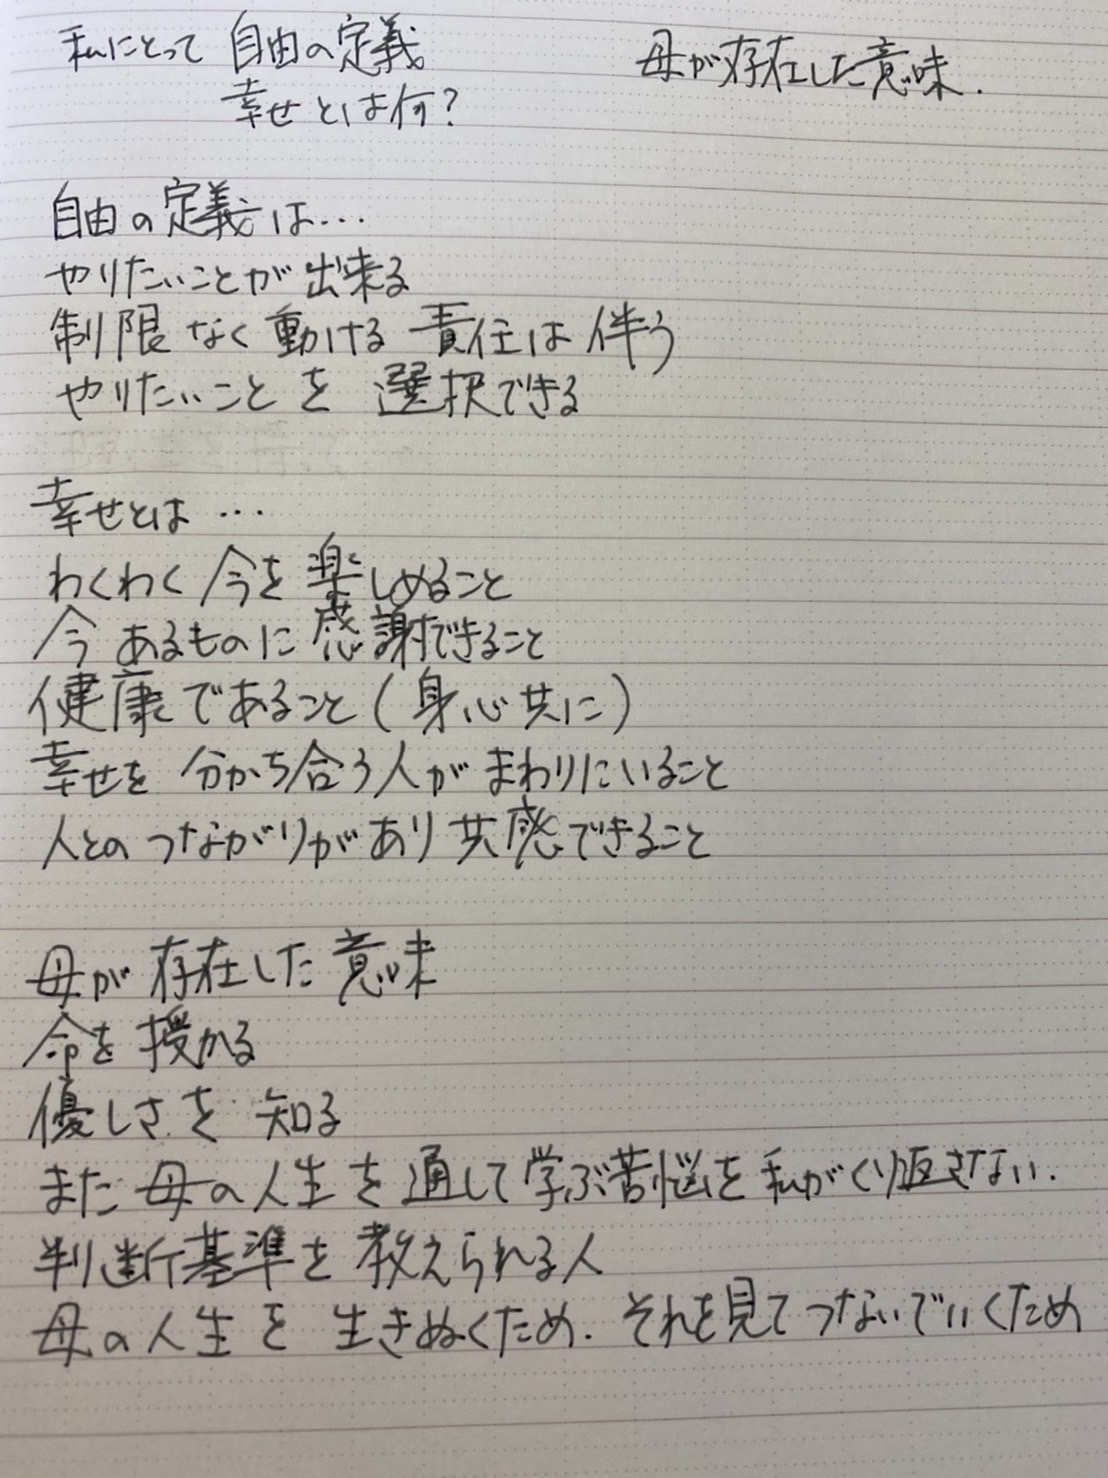 私にとって 自由の定義
幸せとは何?
母が存在した意味.
自由の定義は…
やりたいことが出来る
制限なく動ける 責任は伴う
やりたいことを 選択できる
幸せとは…
わくわく 今を楽しめること
今あるものに感謝できること
健康であること(身心共に)
幸せを 分かち合う人がまわりにいること
人とのつながりがあり 共感できること
母が存在した意味
命を授かる
優しさを知る
また母の人生を通して学ぶ苦悩を私がくり返さない.
判断基準を教えられる人
母の人生を生きぬくため. それを見てつないでいくため